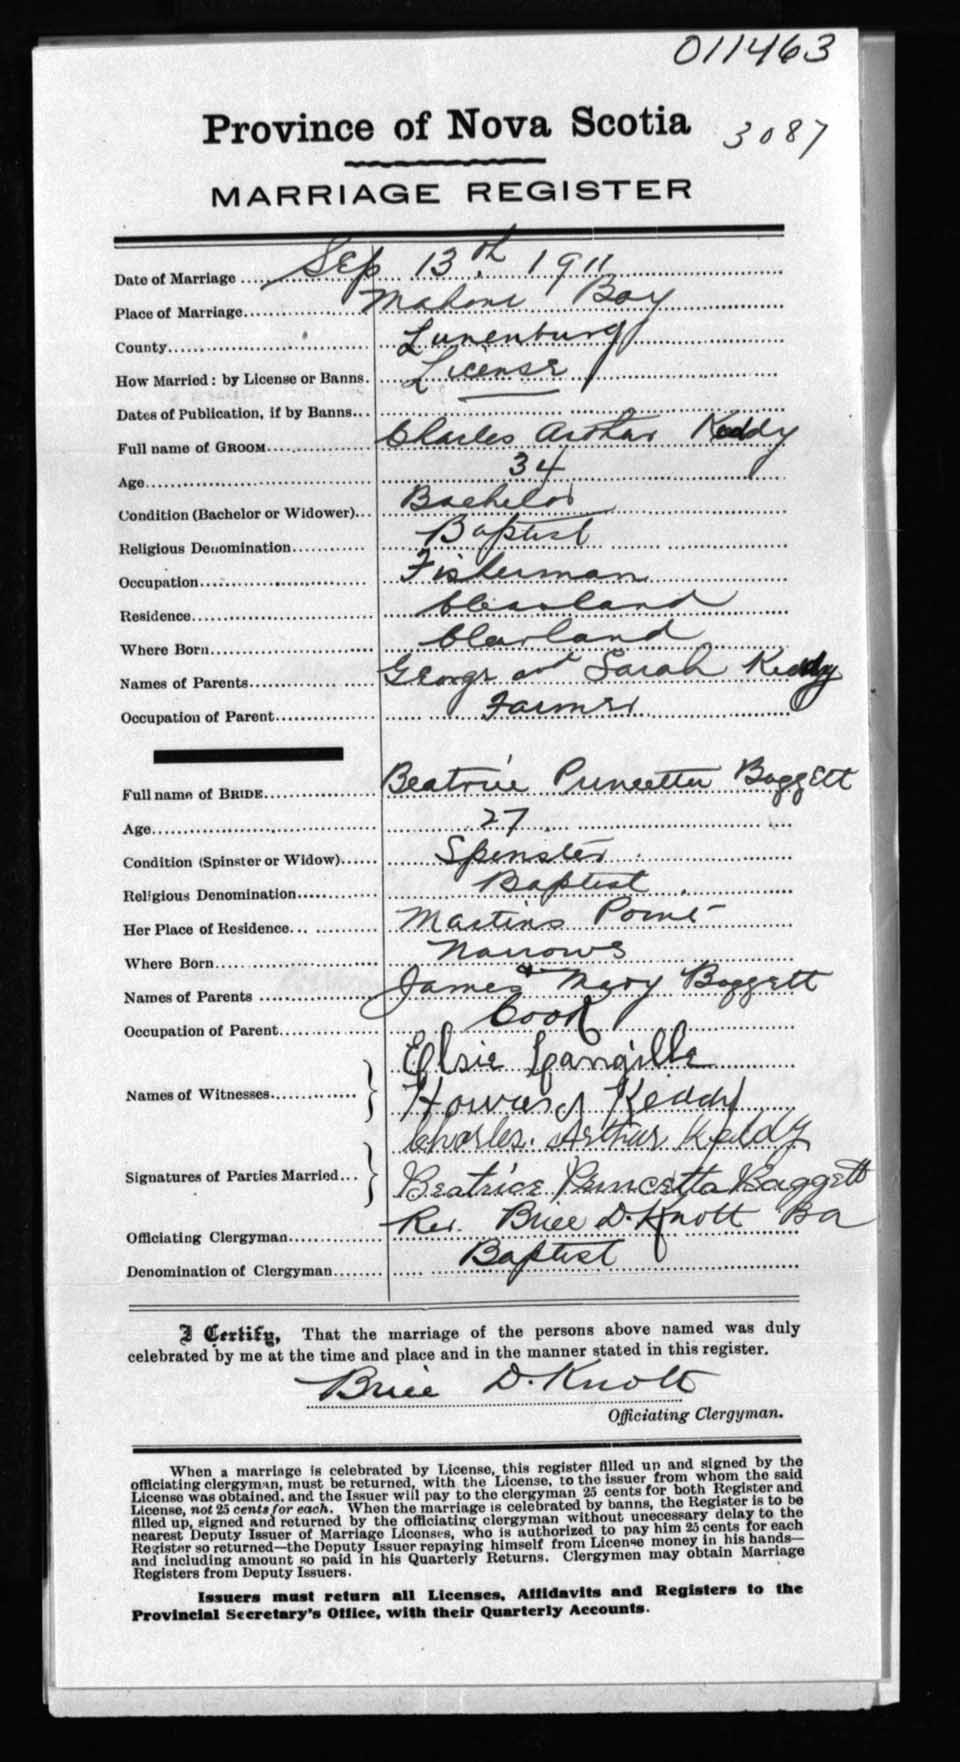 011463
Province of Nova Scotia 3087
MARRIAGE REGISTER
Date of Marriage Sep 13th. 1911
Place of Marriage Mahone Bay
County Lunenburg
How Married: by License or Banns. License
Dates of Publication, if by Banns
Full name of GROOM Charles Arthur Keddy
Age 34
Condition (Bachelor or Widower) Bachelor
Religious Denomination Baptist
Occupation Fisherman
Residence Clearland
Where Born Clearland
Names of Parents George and Sarah Keddy
Occupation of Parent Farmer
Full name of BRIDE Beatrice Baggett
Age 27
Condition (Spinster or Widow) Spinster
Religious Denomination Baptist
Her Place of Residence Martins Point
Where Born Narrows
Names of Parents James & Mary Baggett
Occupation of Parent Cook
Names of Witnesses Elsie Langille
Howard Keddy
Signatures of Parties Married Charles. Arthur Keddy
Beatrice Baggett
Officiating Clergyman Rev. Brice D. Knott Ba
Denomination of Clergyman Baptist
I Certify, That the marriage of the persons above named was duly
celebrated by me at the time and place and in the manner stated in this register.
Brice D. Knott
Officiating Clergyman.
When a marriage is celebrated by License, this register filled up and signed by the
officiating clergyman, must be returned, with the License, to the issuer from whom the said
License was obtained, and the Issuer will pay to the clergyman 25 cents for both Register and
License, not 25 cents for each. When the marriage is celebrated by banns, the Register is to be
filled up, signed and returned by the officiating clergyman without unecessary delay to the
nearest Deputy Issuer of Marriage Licenses, who is authorized to pay him 25 cents for each
Register so returned—the Deputy Issuer repaying himself from License money in his hands—
and including amount so paid in his Quarterly Returns. Clergymen may obtain Marriage
Registers from Deputy Issuers.
Issuers must return all Licenses, Affidavits and Registers to the
Provincial Secretary's Office, with their Quarterly Accounts.